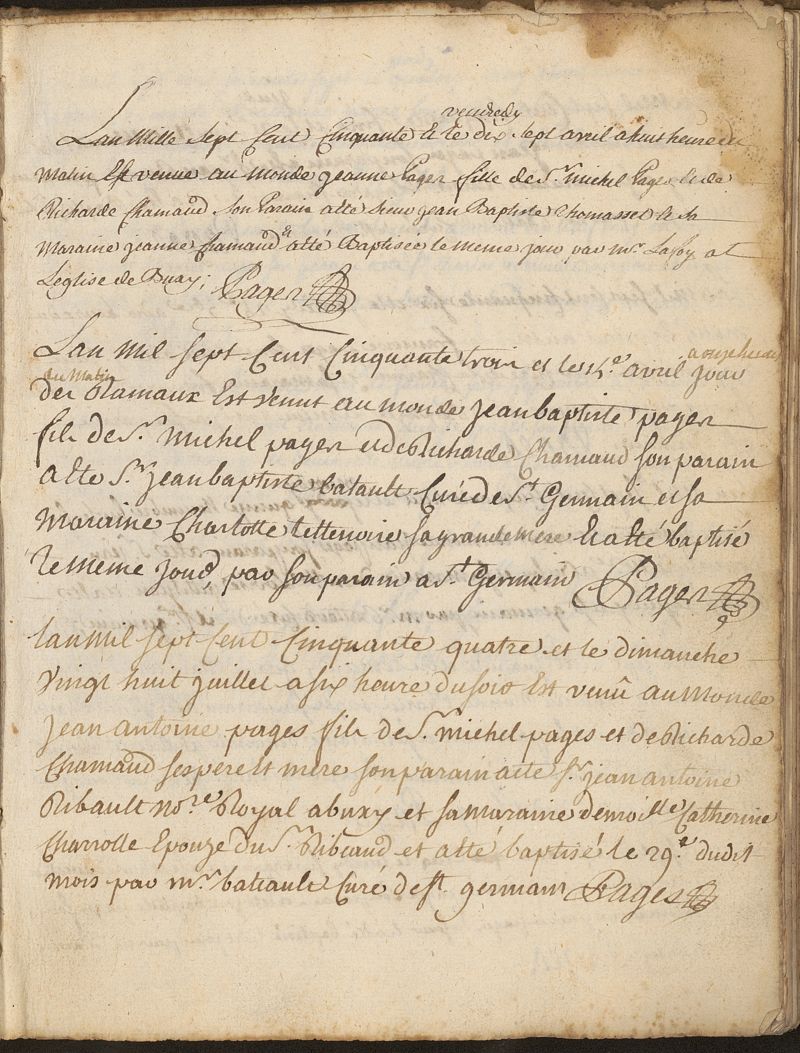 vendredy
Lan Mille sept Cent Cinquante & le dix sept avril a huit heure du
Matin Est venue au monde jeanne Pages fille de Sr. michel Pages & de
Richarde Chamaud son Parain a été sieur jean Baptiste Thomasset & sa
Maraine jeanne Chamaud & a été Baptisée le meme jour par mr. Lafoy a
L'église de Buxy;
Pages
Lan Mil sept Cent Cinquante trois et le 14.e avril jour a onze heures
du Matin
des Rameaux Est venut au monde jean baptiste pages
fils de Sr. Michel pages et de Richarde Chamaud son parain
a été Sr. jean baptiste batault Curé de St. Germain et sa
Maraine Charlotte tettenoire sa grande mere Et a été baptisé
le meme jour, par son parain a St. Germain Pages
lan Mil sept Cent Cinquante quatre et le dimanche
vingt huit juillet a six heure du soir Est venû au Monde
jean antoine pages fils de Sr. michel pages et de Richarde
Chamaud ses pere et mere son parain a été Sr. jean antoine
Ribault no.re Royal a buxy et sa Maraine demoiselle Catherine
Charrolle Epouze du Sr. Ribaud et a été baptisé le 29.e dudit
mois par mr. batault Curé de st. germain Pages